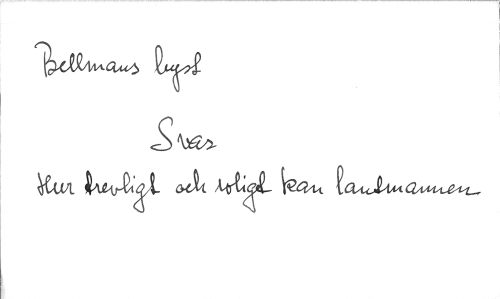 Bellmans byst
Svar
Hur trevligt och roligt kan lantmannen